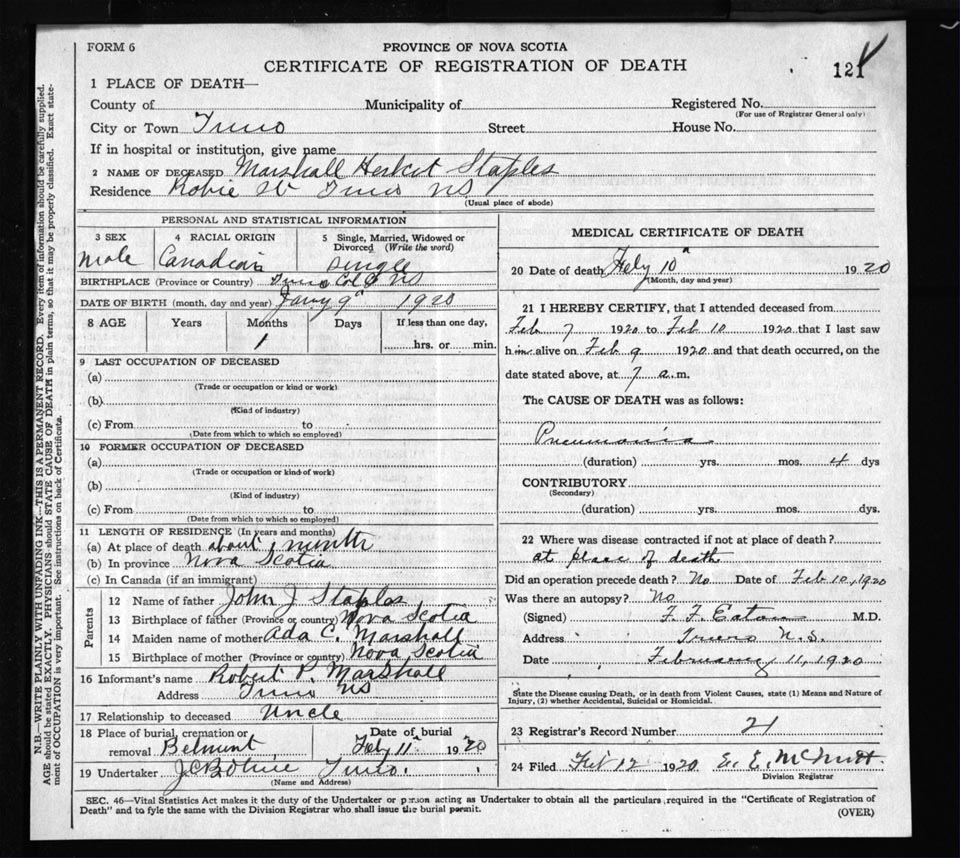 FORM 6
PROVINCE OF NOVA SCOTIA
CERTIFICATE OF REGISTRATION OF DEATH
121
1 PLACE OF DEATH—
County of Municipality of Registered No.
(For use of Registrar General only)
City or Town Truro Street House No.
If in hospital or institution, give name
2 NAME OF DECEASED Marshall Herbert Staples
Residence Robie St Truro NS
(Usual place of abode)
PERSONAL AND STATISTICAL INFORMATION
3 SEX 4 RACIAL ORIGIN 5 Single, Married, Widowed or
Divorced (Write the word)
Male Canadian Single
BIRTHPLACE (Province or Country) Truro Col Co NS
DATE OF BIRTH (month, day and year) Jany 9" 1920
8 AGE Years Months Days If less than one day,
1 hrs. or min.
9 LAST OCCUPATION OF DECEASED
(a)
(Trade or occupation or kind or work)
(b)
(Kind of industry)
(c) From to
(Date from which to which so employed)
10 FORMER OCCUPATION OF DECEASED
(a)
(Trade or occupation or kind of work)
(b)
(Kind of industry)
(c) From to
(Date from which to which so employed)
11 LENGTH OF RESIDENCE (In years and months)
(a) At place of death about 1 month
(b) In province Nova Scotia
(c) In Canada (if an immigrant)
Parents
12 Name of father John J Staples
13 Birthplace of father (Province or country) Nova Scotia
14 Maiden name of mother Ada C. Marshall
15 Birthplace of mother (Province or country) Nova Scotia
16 Informant's name Robert P. Marshall
Address Truro NS
17 Relationship to deceased Uncle
18 Place of burial, cremation or Date of burial
removal Belmont Feby 11" 1920
19 Undertaker Truro.
(Name and Address)
MEDICAL CERTIFICATE OF DEATH
20 Date of death Feby 10" 1920
(Month, day and year)
21 I HEREBY CERTIFY, that I attended deceased from
Feb 7 1920 to Feb 10 1920 that I last saw
him alive on Feb 9 1920 and that death occurred, on the
date stated above, at 7 a.m.
The CAUSE OF DEATH was as follows:
Pneumonia
(duration) yrs. mos. 4 dys
CONTRIBUTORY
(Secondary)
(duration) yrs. mos. dys.
22 Where was disease contracted if not at place of death?
at place of death
Did an operation precede death? No Date of Feb 10, 1920
Was there an autopsy? No
(Signed) F. F. Eaton M.D.
Address Truro N.S.
Date February 11, 1920
State the Disease causing Death, or in death from Violent Causes, state (1) Means and Nature of
Injury, (2) whether Accidental, Suicidal or Homicidal.
23 Registrar's Record Number 21
24 Filed Feb 12 1920 E. E. McNutt.
Division Registrar
SEC. 46—Vital Statistics Act makes it the duty of the Undertaker or person acting as Undertaker to obtain all the particulars required in the "Certificate of Registration of
Death" and to fyle the same with the Division Registrar who shall issue the burial permit.
(OVER)
N.B.—WRITE PLAINLY WITH UNFADING INK—THIS IS A PERMANENT RECORD. Every item of information should be carefully supplied.
AGE should be stated EXACTLY. PHYSICIANS should STATE CAUSE OF DEATH in plain terms, so that it may be properly classified. Exact state-
ment of OCCUPATION is very important. See instructions on back of Certificate.